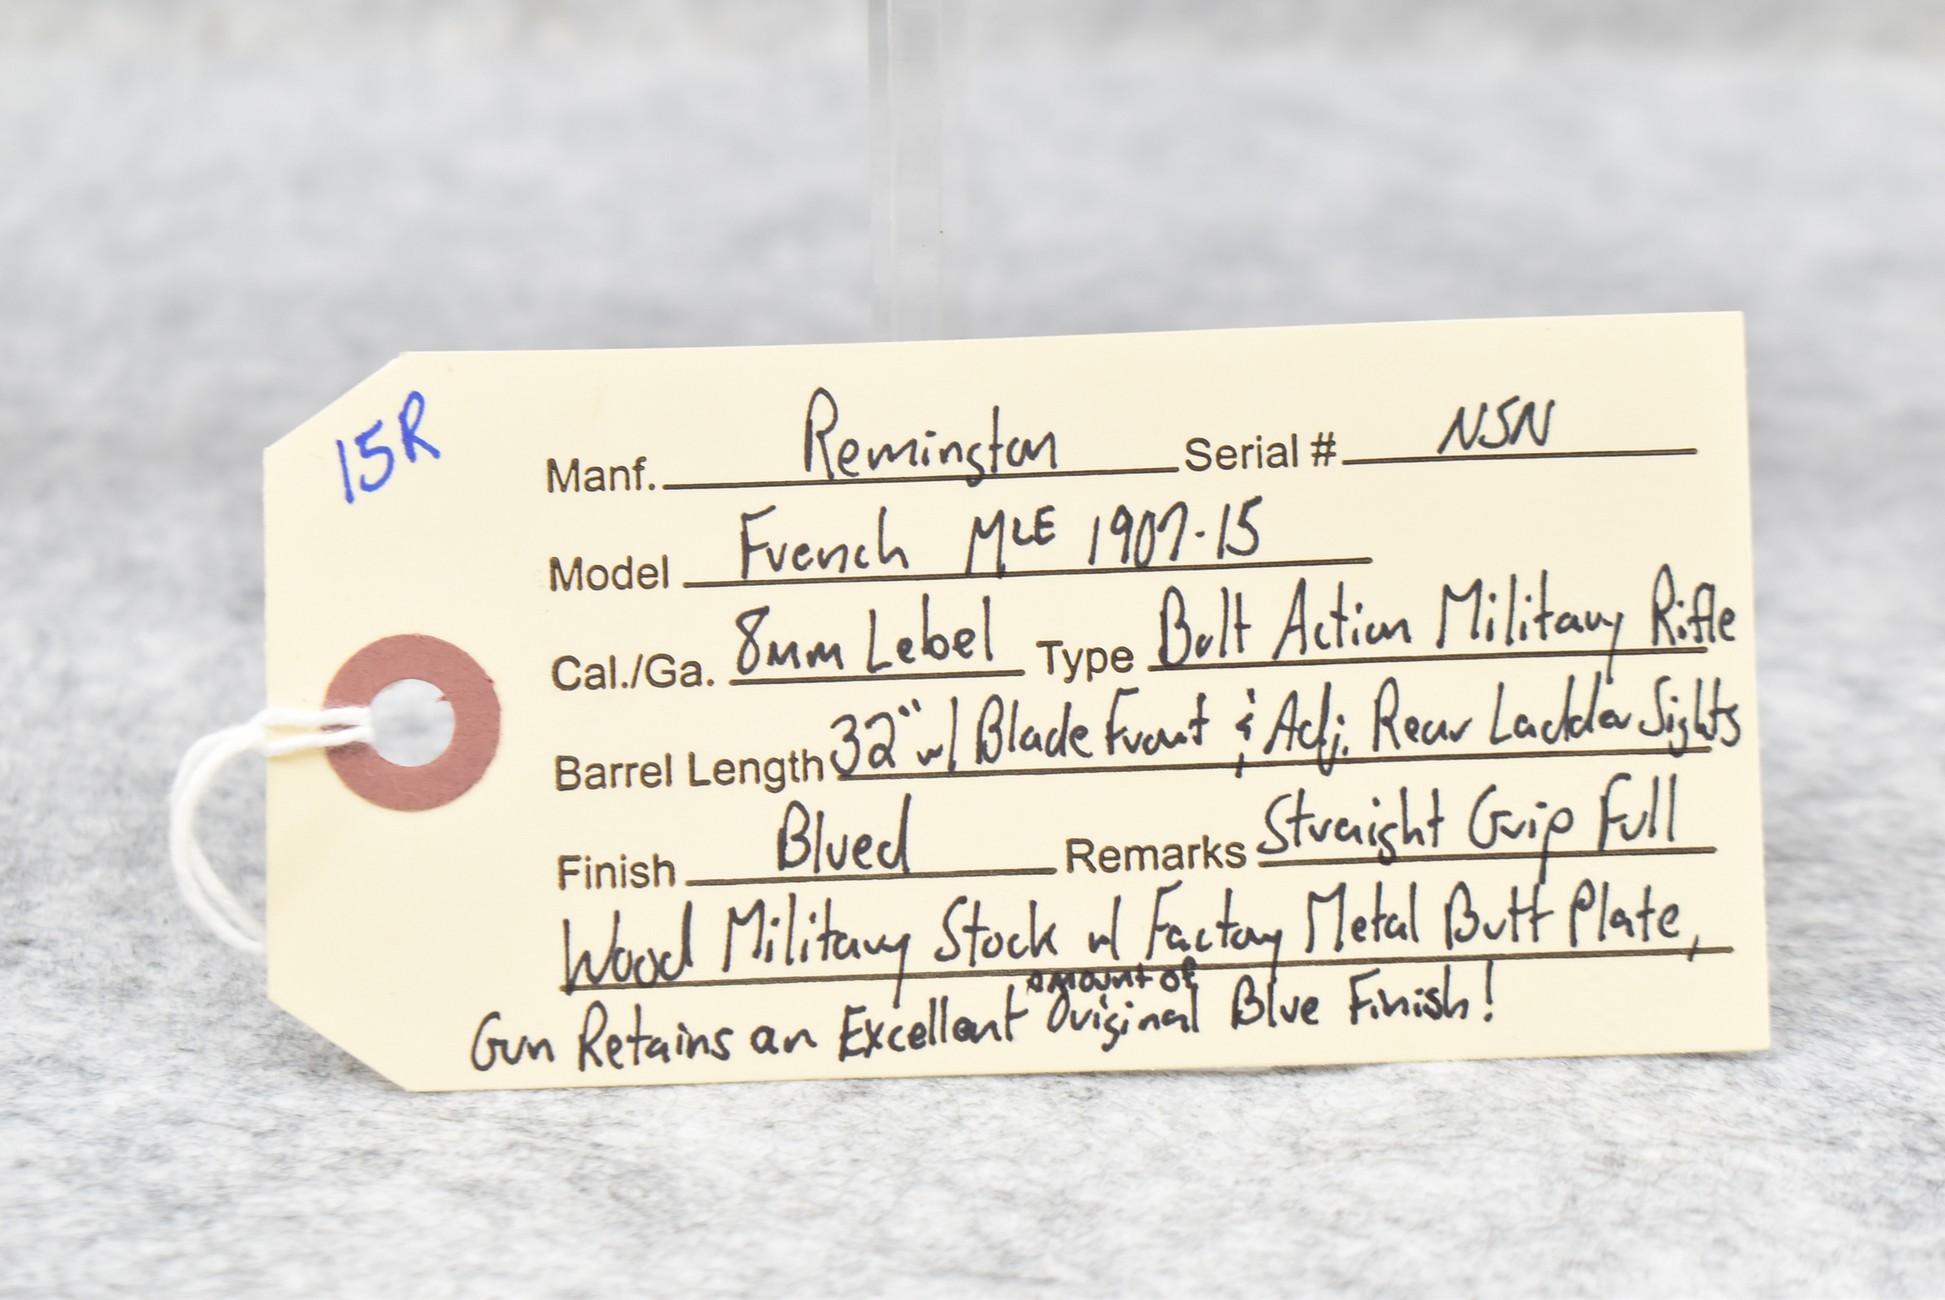 15R
Manf. Remington Serial # NSN
Model French MLE 1907-15
Cal./Ga. 8mm Lebel Type Bolt Action Military Rifle
Barrel Length 32" w/ Blade Front & Adj. Rear Ladder Sights
Finish Blued Remarks Straight Grip Full
Wood Military Stock w/ Factory Metal Butt Plate,
Gun Retains an Excellent amount of Original Blue Finish!